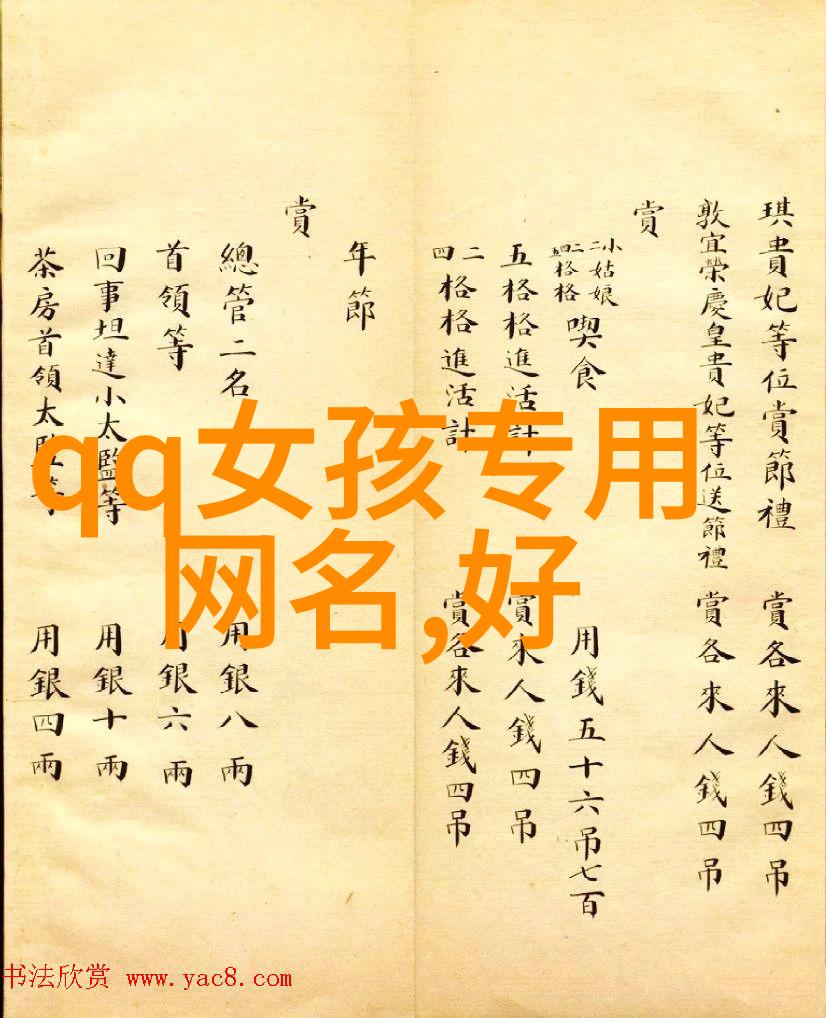 琪貴妃等位賞節禮 賞各來人錢四吊
敦宜榮慶皇貴妃等位送節禮 賞各來人錢四吊
賞
小姑娘
二
二格格
四格格
喫食 用錢五十六吊七百
五格格進活計 賞來人錢四吊
二
四格格進活計 賞各來人錢四吊
年節
賞
總管二名 用銀八兩
首領等 用銀六兩
回事坦達小太監等 用銀十兩
茶房首領太監等 用銀四兩
qq女孩专用
网名,好
书法欣赏 www.yac8.com